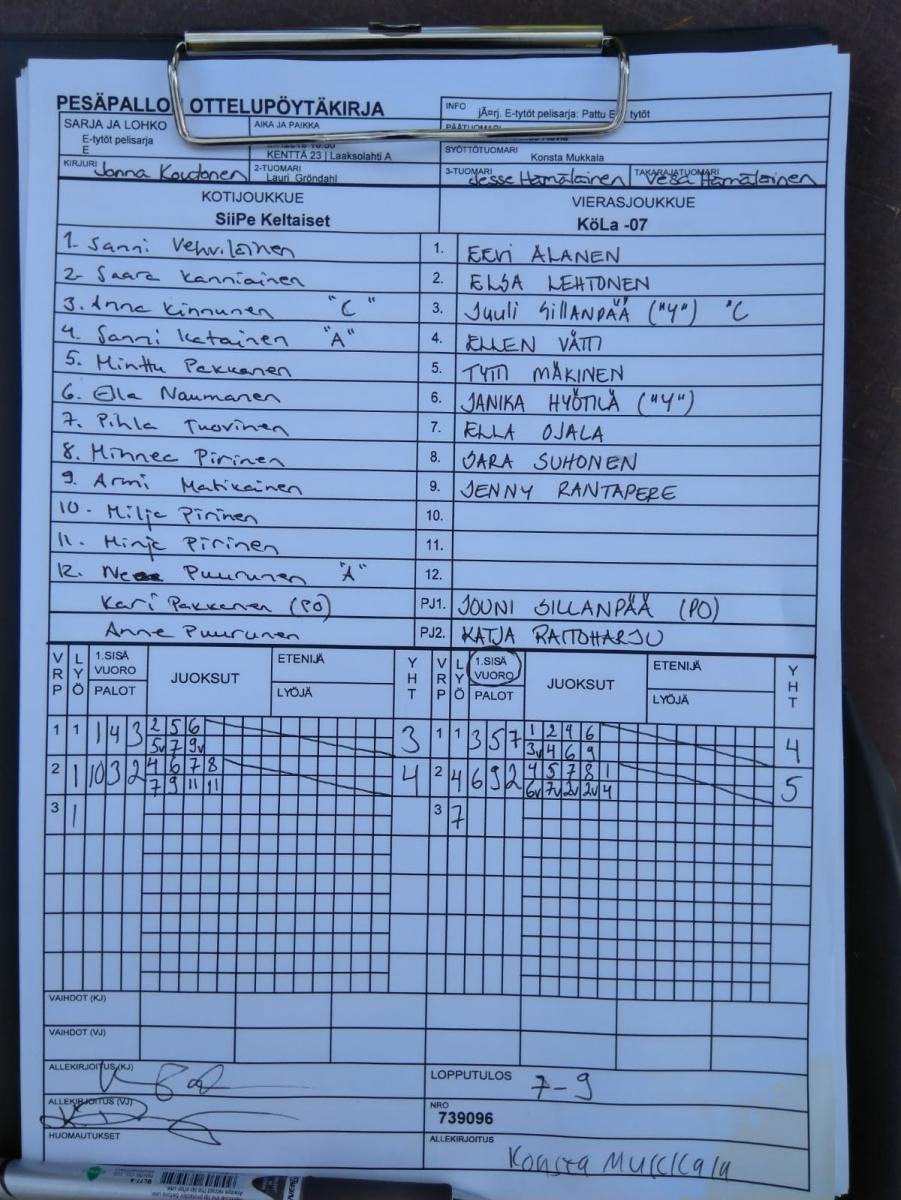 PESÄPALLO OTTELUPÖYTÄKIRJA
INFO
jÄ¤rj. E-tytöt pelisarja: Pattu E tytöt
SARJA JA LOHKO
E-tytöt pelisarja
E
AIKA JA PAIKKA
KENTTÄ 23 | Laaksolahti A
PÄÄTUOMARI
SYÖTTÖTUOMARI
Konsta Mukkala
KIRJURI
2-TUOMARI
Lauri Gröndahl
3-TUOMARI Jesse Hämäläinen
TAKARAJATUOMARI Vesa Hämäläinen
KOTIJOUKKUE
SiiPe Keltaiset
VIERASJOUKKUE
KöLa -07
1. Sanni Vehviläinen
1. EEVI ALANEN
2. Saara Kanniainen
2. ELSA LEHTONEN
3. Anna Kinnunen "C"
3. Juuli SILLANPÄÄ ("4") "C
4. Sanni Ketainen "A"
4. ELLEN VÄTTI
5. Minttu Pakkanen
5. TYTTI MÄKINEN
6. Ella Naumanen
6. JANIKA HYÖTILÄ ("4")
7. Pihla Tuovinen
7. ELLA OJALA
8. Minnea Pirinen
8. SARA SUHONEN
9. Armi Matikainen
9. JENNY RANTAPERE
10. Milja Pirinen
10.
11. Minja Pirinen
11.
12. Puurunen "A"
12.
Kari Pakkanen (PO)
PJ1. JOUNI SILLANPÄÄ (PO)
Anne Puurunen
PJ2. KATJA RAITOHARJU
VRP LYÖ 1.SISÄ VUORO PALOT JUOKSUT ETENIJÄ LYÖJÄ YHT
VRP LYÖ 1.SISÄ VUORO PALOT JUOKSUT ETENIJÄ LYÖJÄ YHT
1 1 1 4 3 2 5 6 3
5v 7 9v
1 1 3 5 7 1 2 4 6 4
3v 4 6 9
2 1 10 3 2 4 6 7 8 4
7 9 11 11
2 4 6 9 2 4 5 7 8 1 5
6v 7v 2v 2v 4
3 1
3 7
VAIHDOT (KJ)
VAIHDOT (VJ)
ALLEKIRJOITUS (KJ)
LOPPUTULOS 7-9
ALLEKIRJOITUS (VJ)
NRO
739096
HUOMAUTUKSET
ALLEKIRJOITUS
Konsta Mukkala